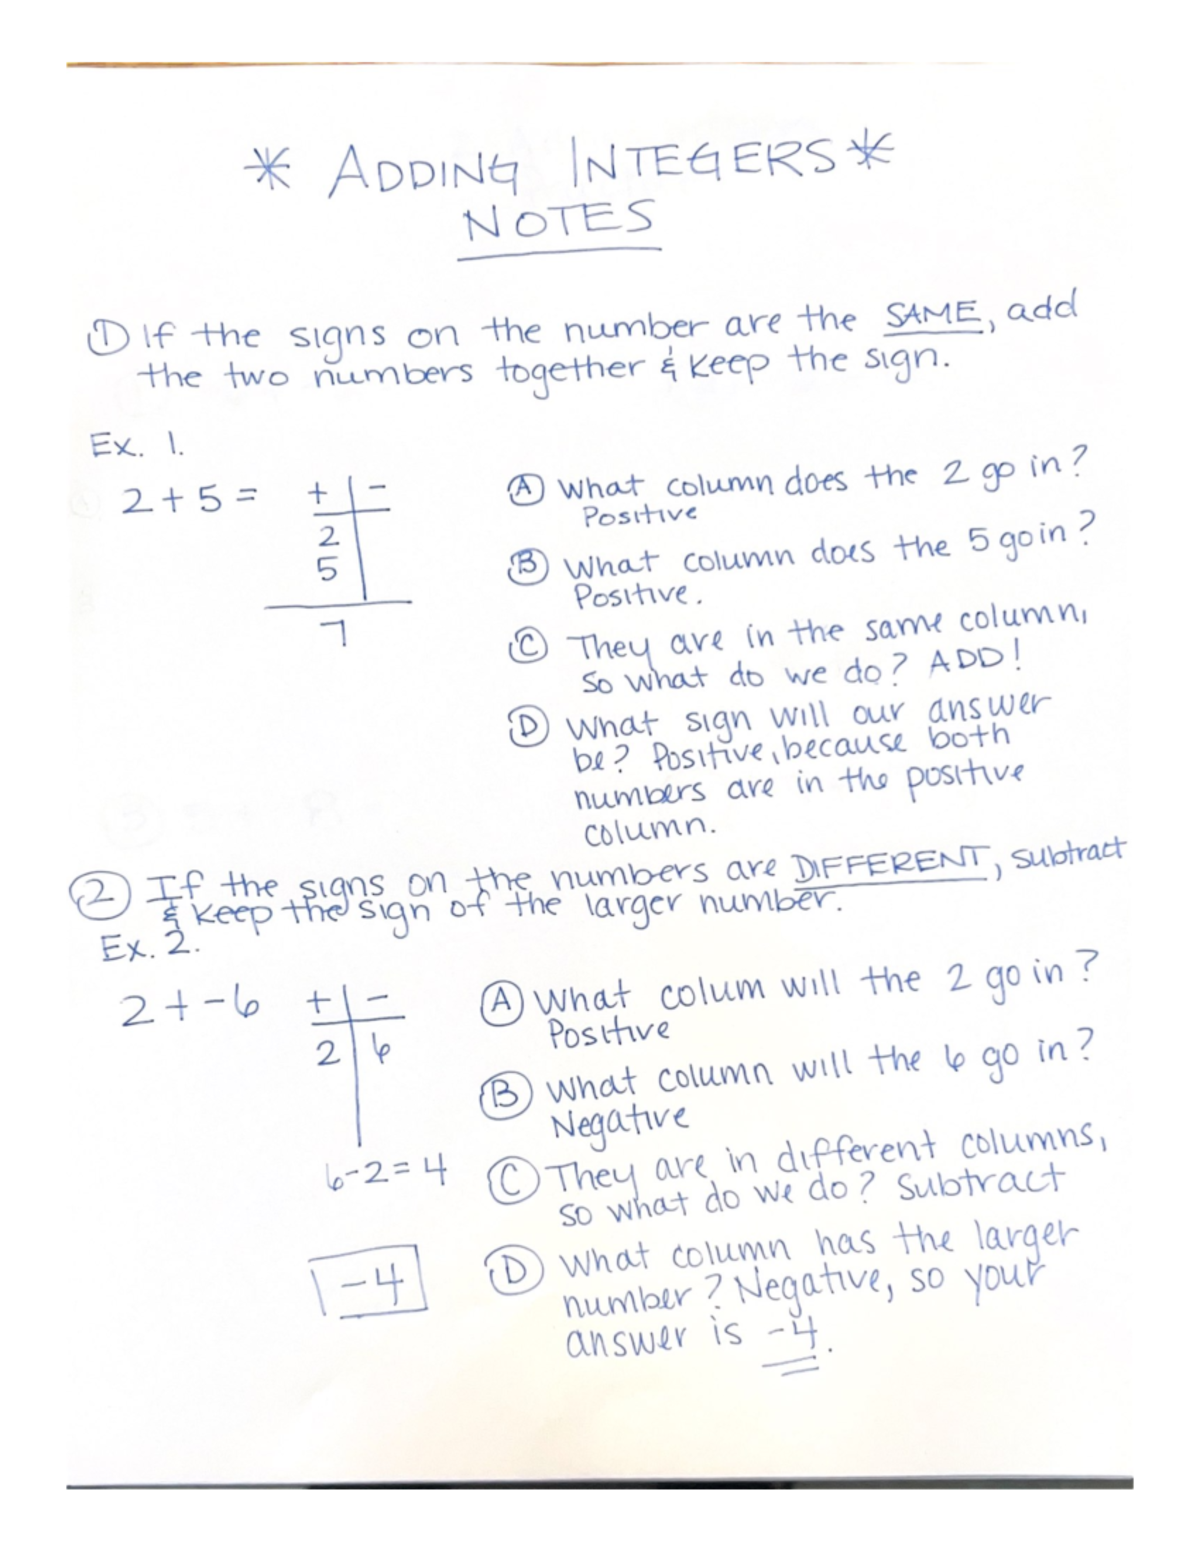 * ADDING INTEGERS *
NOTES
① If the signs on the number are the SAME, add
the two numbers together & keep the sign.
Ex. 1.
2 + 5 =
+ | -
2
5
7
Ⓐ What column does the 2 go in?
Positive
Ⓑ What column does the 5 go in?
Positive.
Ⓒ They are in the same column,
so what do we do? ADD!
Ⓓ What sign will our answer
be? Positive, because both
numbers are in the positive
column.
② If the signs on the numbers are DIFFERENT, subtract
& keep the sign of the larger number.
Ex. 2.
2 + -6
+ | -
2 | 6
6-2=4
-4
Ⓐ What colum will the 2 go in?
Positive
Ⓑ What column will the 6 go in?
Negative
Ⓒ They are in different columns,
so what do we do? Subtract
Ⓓ What column has the larger
number? Negative, so your
answer is -4.